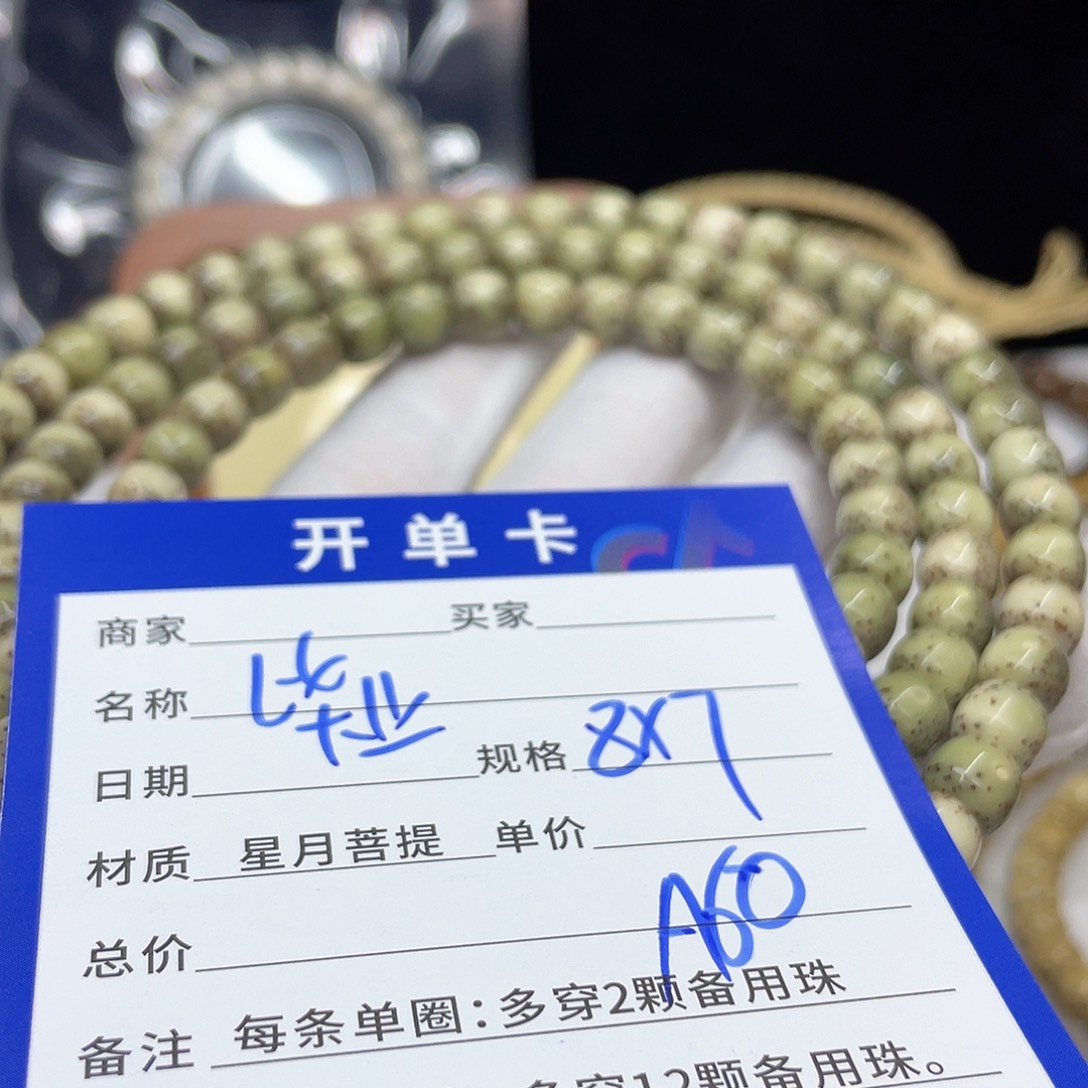 开单卡
商家 买家
名称
日期 规格 8X7
材质 星月菩提 单价
总价 A60
备注 每条单圈：多穿2颗备用珠
多穿12颗备用珠。